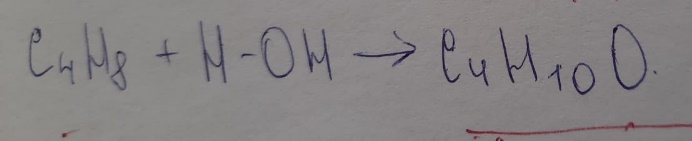 C₄H₈ + H-OH → C₄H₁₀O.